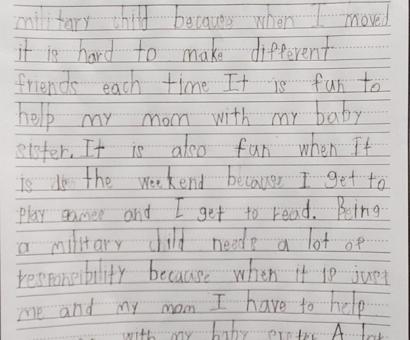 military child because when I moved
it is hard to make different
friends each time It is fun to
help my mom with my baby
sister. It is also fun when it
is the weekend because I get to
play games and I get to read. Being
a military child needs a lot of
responsibility because when it is just
me and my mom I have to help
with my baby sister A lot